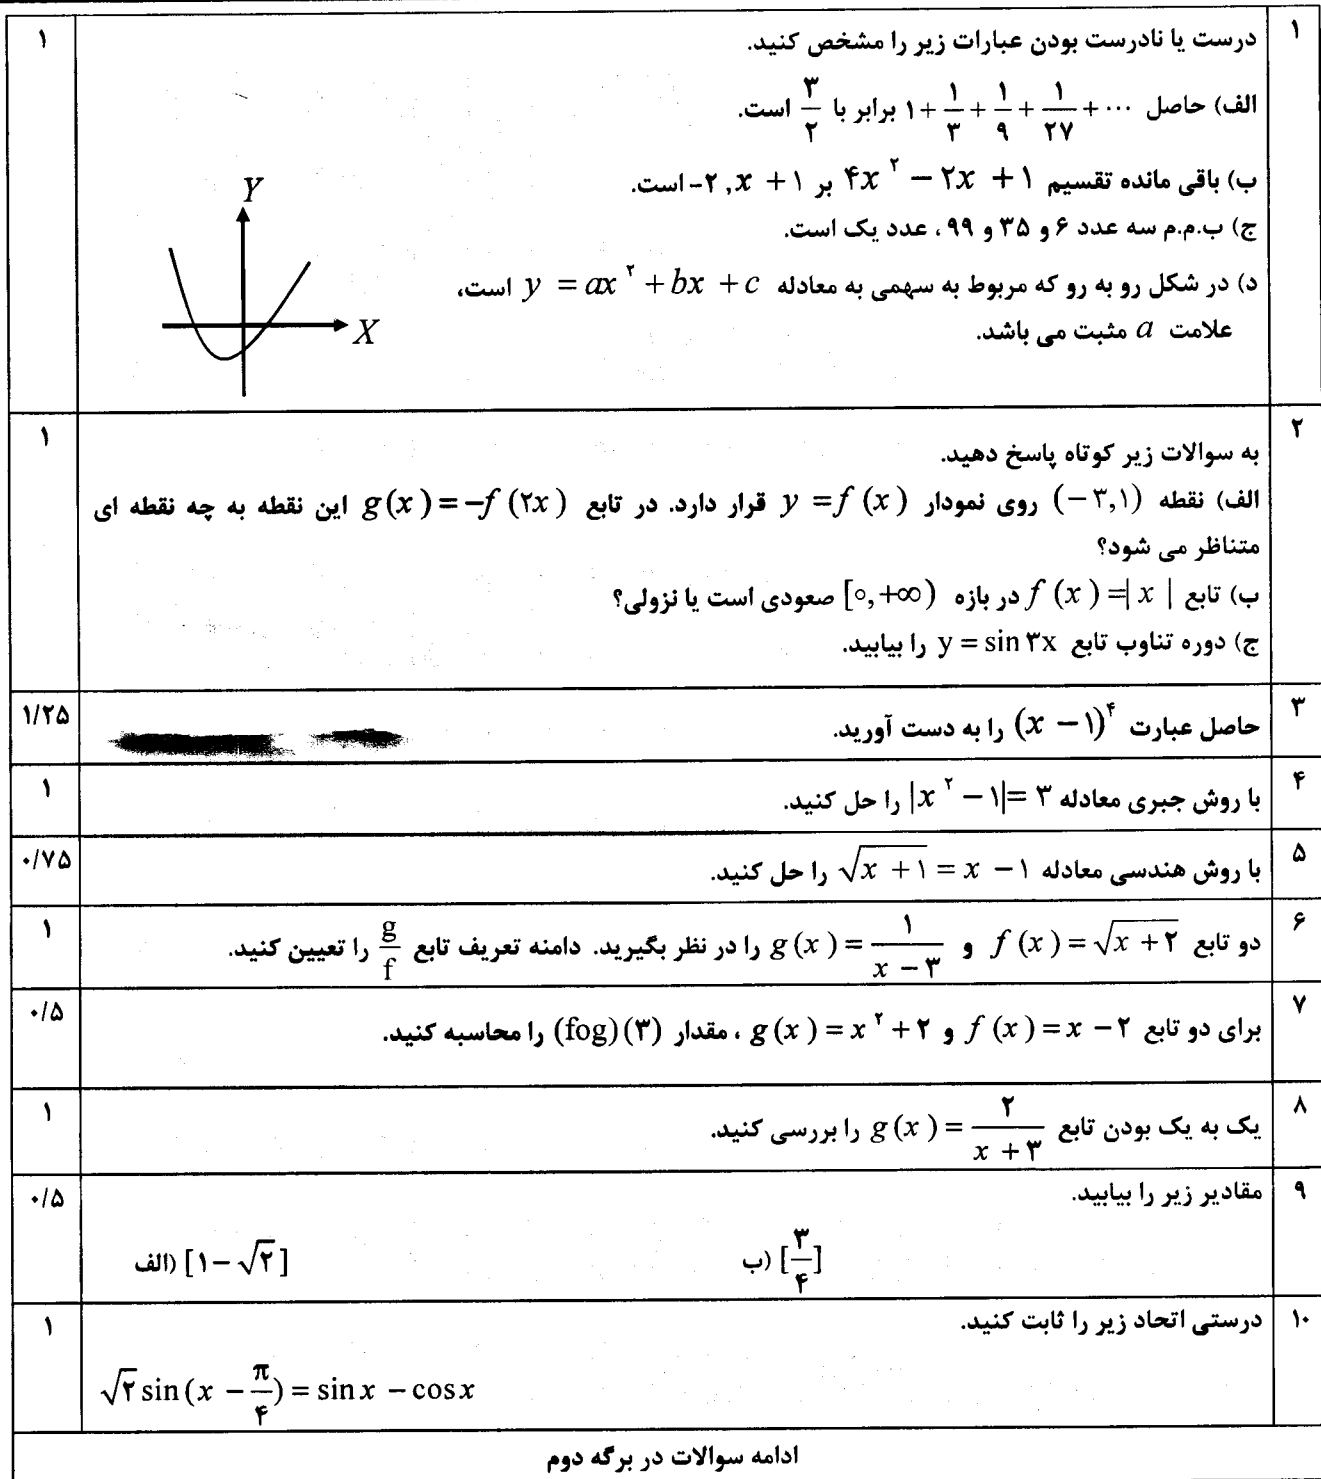 ۱ درست یا نادرست بودن عبارات زیر را مشخص کنید. ۱
الف) حاصل ۱ + ۱/۳ + ۱/۹ + ۱/۲۷ + ⋯ برابر با ۳/۲ است.
ب) باقی مانده تقسیم ۴x² − ۲x + ۱ بر x + ۱ , ۲- است.
ج) ب.م.م سه عدد ۶ و ۳۵ و ۹۹ ، عدد یک است.
د) در شکل رو به رو که مربوط به سهمی به معادله y = ax² + bx + c است،
علامت a مثبت می باشد.
Y
X
۲ به سوالات زیر کوتاه پاسخ دهید. ۱
الف) نقطه (−۳,۱) روی نمودار y = f (x) قرار دارد. در تابع g(x) = −f (۲x) این نقطه به چه نقطه ای
متناظر می شود؟
ب) تابع f (x) = |x| در بازه [۰,+∞) صعودی است یا نزولی؟
ج) دوره تناوب تابع y = sin ۳x را بیابید.
۳ حاصل عبارت (x − ۱)⁴ را به دست آورید. ۱/۲۵
۴ با روش جبری معادله |x² − ۱| = ۳ را حل کنید. ۱
۵ با روش هندسی معادله √(x + ۱) = x − ۱ را حل کنید. ۰/۷۵
۶ دو تابع f (x) = √(x + ۲) و g(x) = ۱/(x − ۳) را در نظر بگیرید. دامنه تعریف تابع g/f را تعیین کنید. ۱
۷ برای دو تابع f (x) = x − ۲ و g(x) = x² + ۲ ، مقدار (fog)(۳) را محاسبه کنید. ۰/۵
۸ یک به یک بودن تابع g(x) = ۲/(x + ۳) را بررسی کنید. ۱
۹ مقادیر زیر را بیابید. ۰/۵
ب) [۳/۴] الف) [۱ − √۲]
۱۰ درستی اتحاد زیر را ثابت کنید. ۱
√۲ sin(x − π/۴) = sin x − cos x
ادامه سوالات در برگه دوم